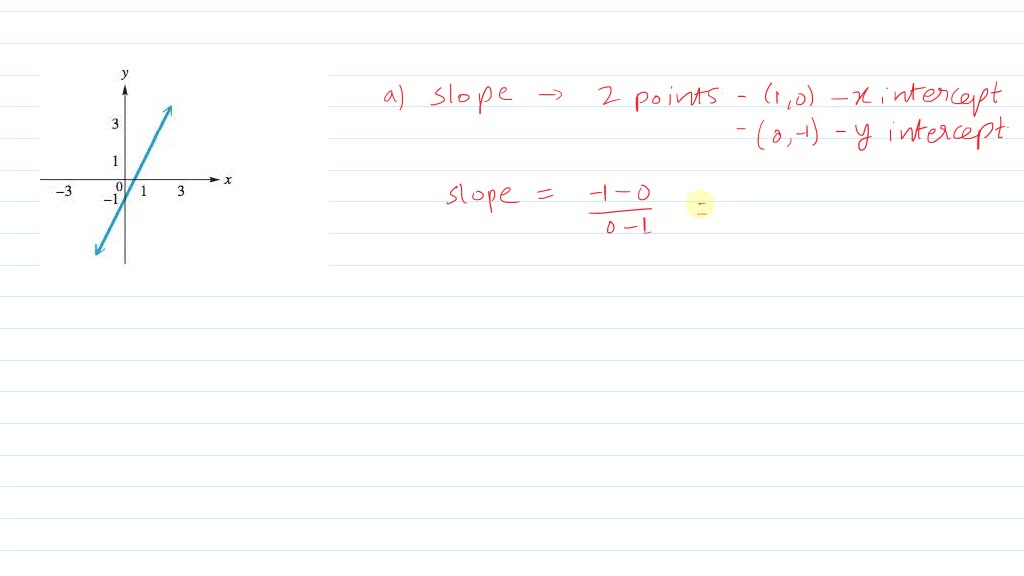 y
3
1
-3 0 1 3 x
-1
a) slope → 2 points - (1,0) - x intercept
- (0,-1) - y intercept
slope = -1-0 =
0-1